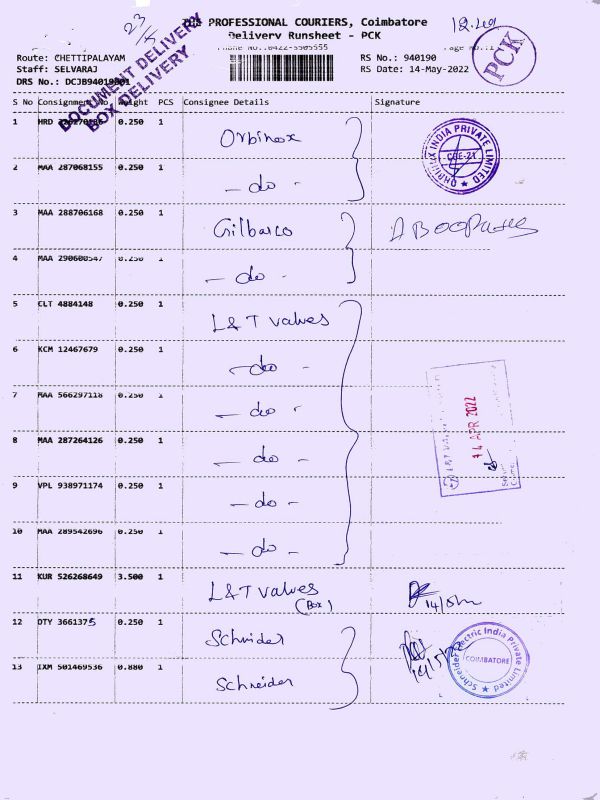 23/5
THE PROFESSIONAL COURIERS, Coimbatore
Delivery Runsheet - PCK
Phone No.:0422-5505555
Page No.:1
PCK
DOCUMENT DELIVERY
BOX DELIVERY
Route: CHETTIPALAYAM
Staff: SELVARAJ
RS No.: 940190
RS Date: 14-May-2022
S No Consignment No. Weight PCS Consignee Details Signature
1 0.250 1 Orbinox
ORBINOX INDIA PRIVATE LIMITED
CBE-21
2 MAA 287068155 0.250 1 - do -
3 MAA 288706168 0.250 1 Gilbarco
4 MAA 0.250 1 - do -
5 CLT 4884148 0.250 1 L&T valves
6 KCM 12467679 0.250 1 - do -
7 MAA 566297118 0.250 1 - do -
14 APR 2022
8 MAA 287264126 0.250 1 - do -
9 VPL 938971174 0.250 1 - do -
10 MAA 289542696 0.250 1 - do -
11 KUR 526268649 3.500 1 L&T valves
(Box)
12 DTY 3661375 0.250 1 Schnider
Schneider Electric India Private Limited
COIMBATORE
13 IXM 501469536 0.880 1 Schneider